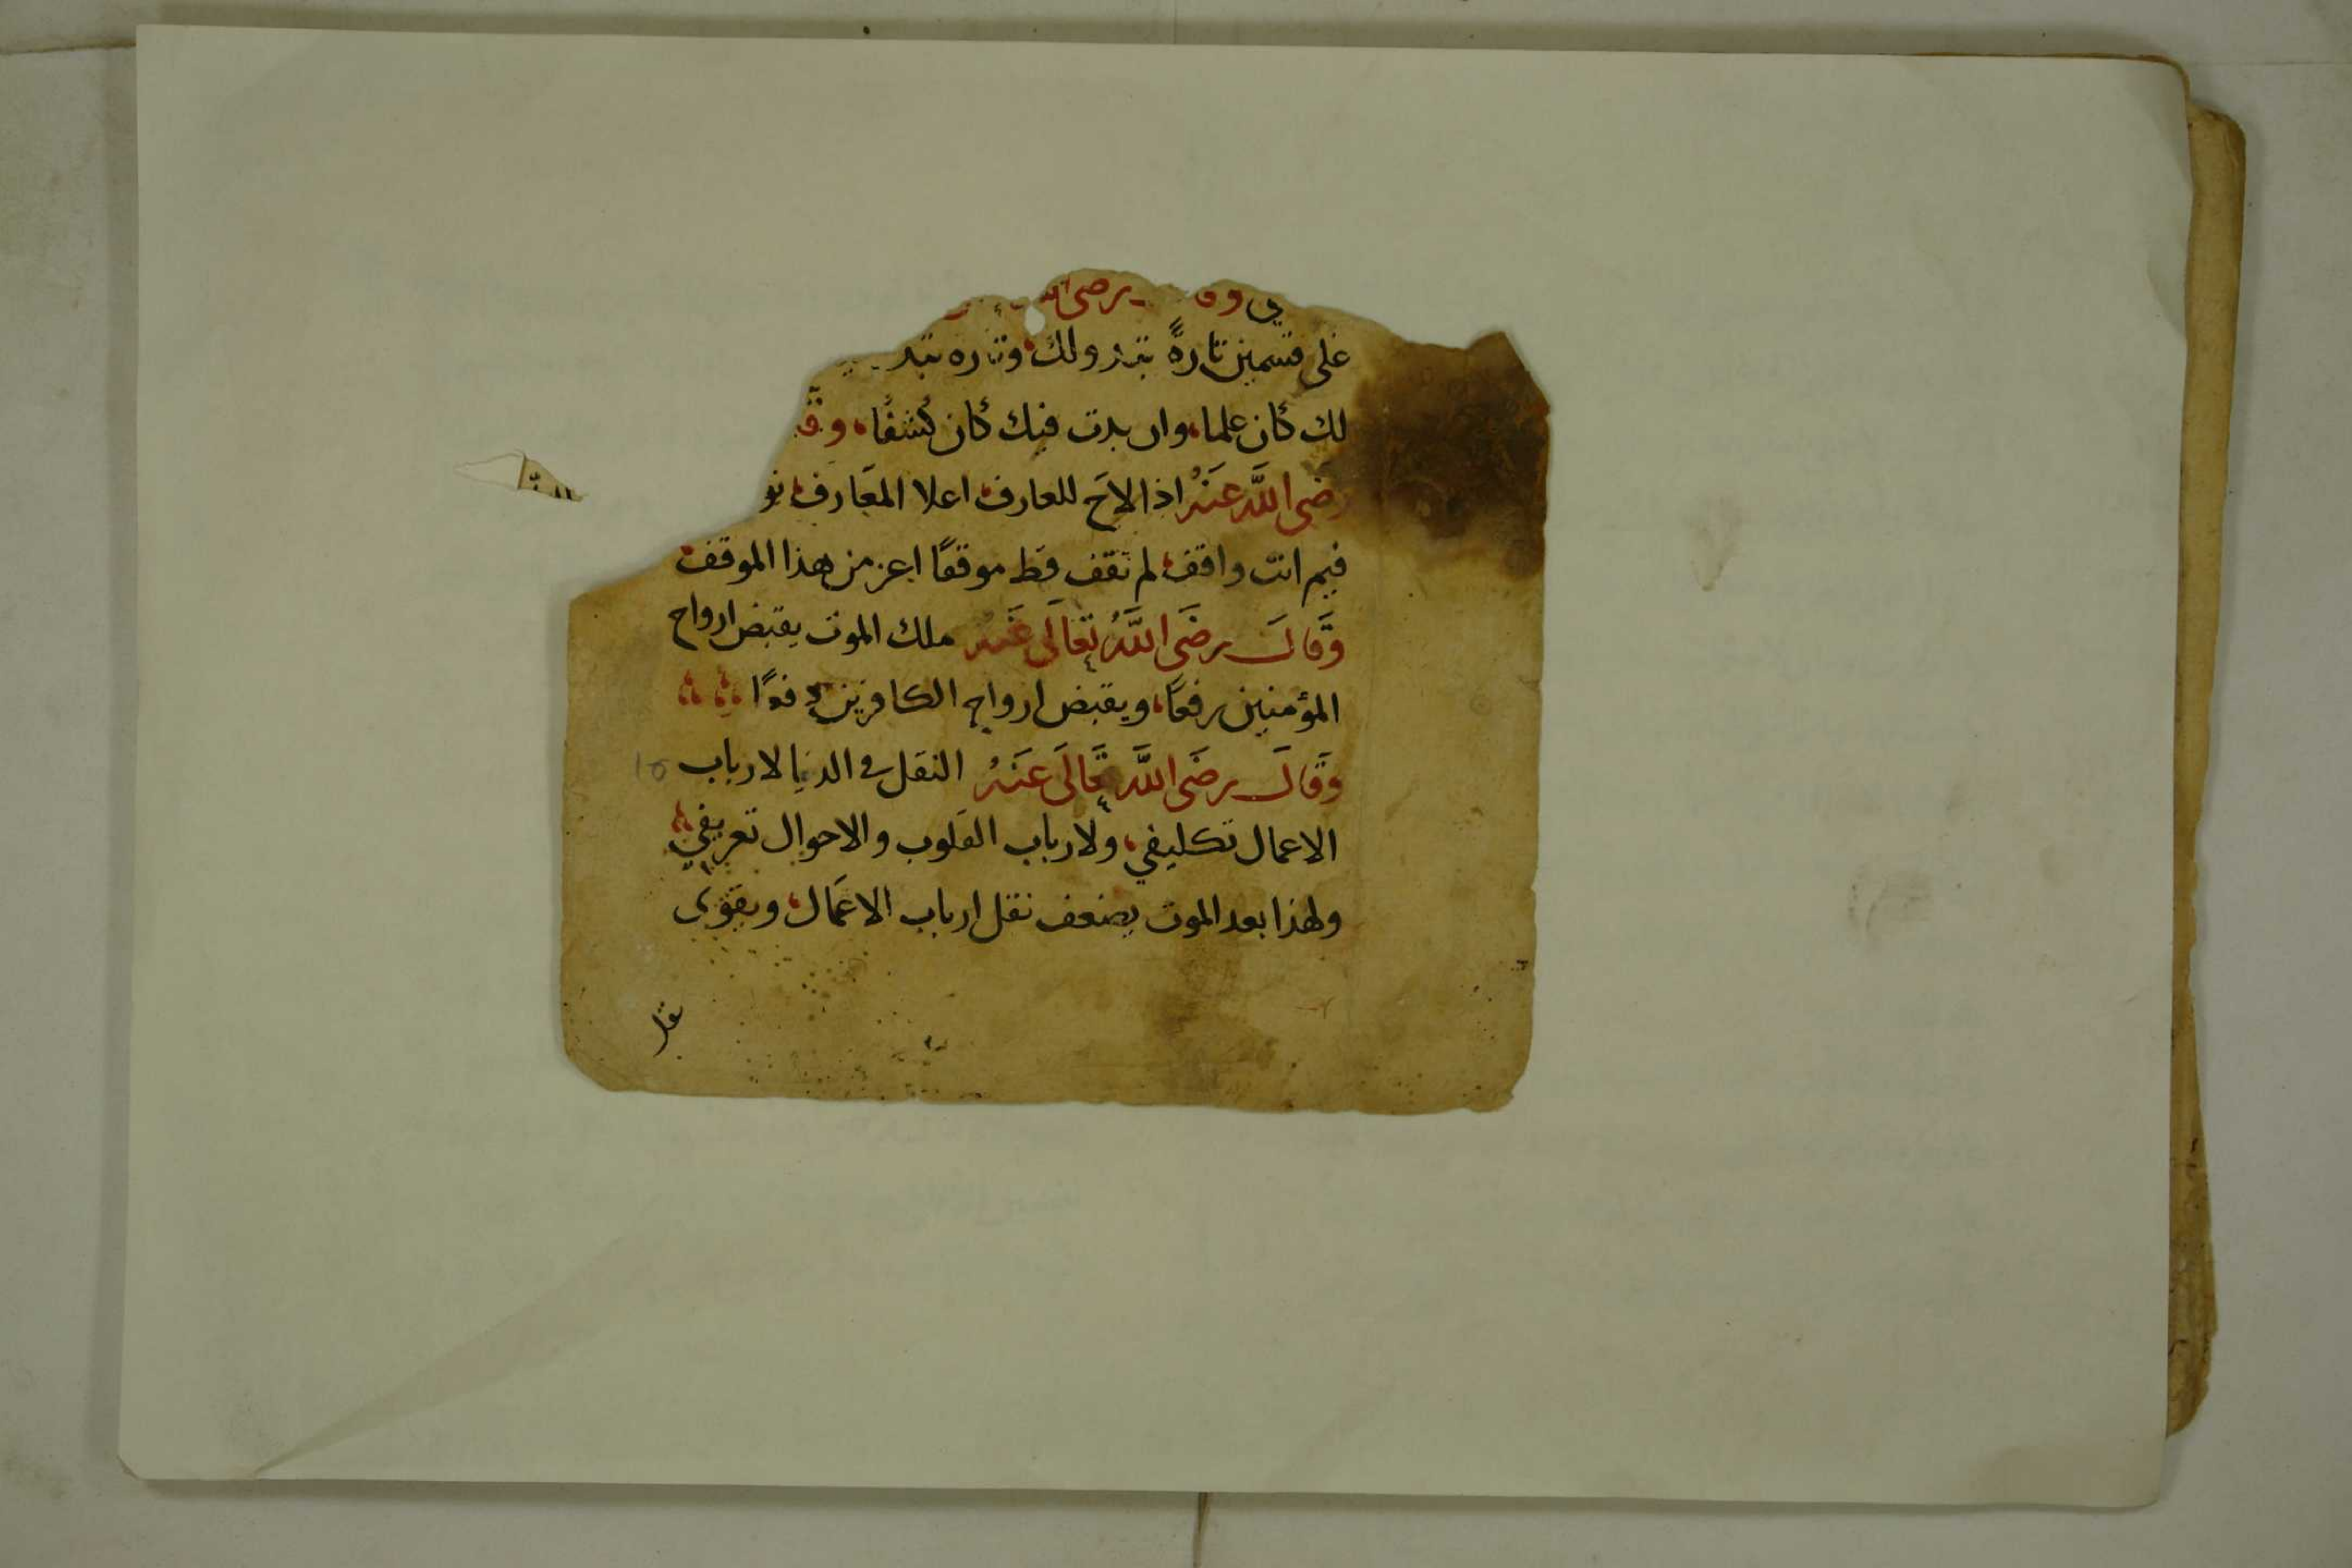 رضى
على قسمين تارةً تبدو لك، وتاره
لك كان علما، وان بدت فيك كان كشفًا،
رضَى اللَّه عَنهُ اذا لاحَ للعارف، اعلا المعَارف،
فيم انت واقف، لم تقف قط موقفًا اعز من هذا الموقف
وَقَالَ رضَى اللَّهُ تعَالَى عَنهُ ملك الموت يقبض ارواح
المؤمنين رفعًا، ويقبض ارواح الكافرين
وَقَالَ رضَى اللَّه تَعَالَى عَنهُ النقل فى الدنيا لارباب
الاعمال تكليفي، ولارباب القلوب والاحوال تعريفي
ولهذا بعد الموت يضعف نقل ارباب الاعمَال، ويقوى
15